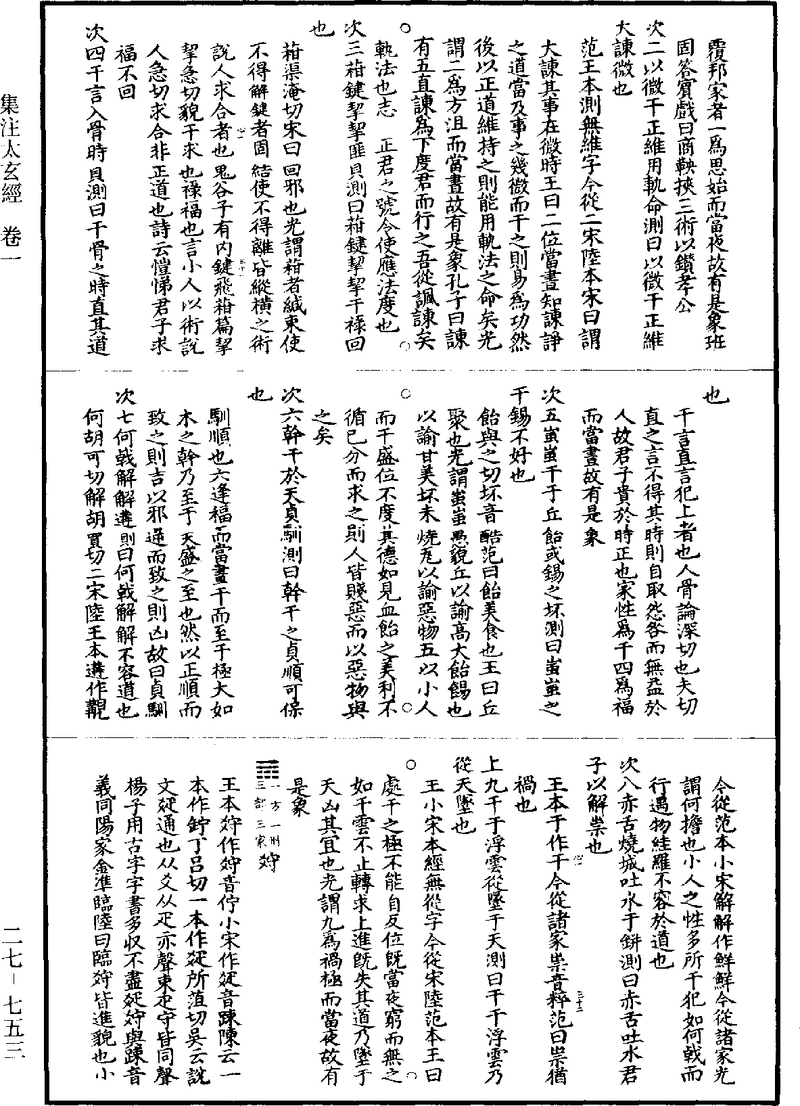 集注太玄經　卷一
覆邦家者一爲思始而當夜故有是象班
固答賓戲曰商鞅挾三術以鑽孝公
次二以微干正維用軌命測曰以微干正維
大諫微也
范王本測無維字今從二宋陸本宋曰謂
大諫其事在微時王曰二位當晝知諫諍
之道當及事之幾微而干之則易爲功然
後以正道維持之則能用軌法之命矣光
謂二爲方沮而當晝故有是象孔子曰諫
有五直諫爲下度君而行之吾從諷諫矣
軌法也志　正君之號令使應法度也
次三葙鍵挈挈匪貝測曰葙鍵挈挈干祿回
也
葙渠淹切宋曰回邪也光謂葙者緘束使
不得解鍵者固結使不得離皆縱橫之術
說人求合者也鬼谷子有内鍵飛葙篇挈
挈急切貌干求也祿福也言小人以術說
人急切求合非正道也詩云愷悌君子求
福不回
次四干言入骨時貝測曰干骨之時直其道
也
干言直言犯上者也人骨論深切也夫切
直之言不得其時則自取怨咎而無益於
人故君子貴於時正也家性爲干四爲福
而當晝故有是象
次五蚩蚩干于丘飴或錫之坏測曰蚩蚩之
干錫不好也
飴與之切坏音醅范曰飴美食也王曰丘
聚也光謂蚩蚩愚貌丘以諭高大飴餳也
以諭甘美坏未燒瓦以諭惡物五以小人
而干盛位不度其德如見血飴之美利不
循已分而求之則人皆賤惡而以惡物與
之矣
次六幹干於天貞馴測曰幹干之貞順可保
也
馴順也六逢福而當晝干而至于極大如
木之幹乃至于天盛之至也然以正順而
致之則吉以邪逼而致之則凶故曰貞馴
次七何戟解解遘測曰何戟解解不容道也
何胡可切解胡買切二宋陸王本遘作覯
今從范本小宋解解作鮮鮮今從諸家光
謂何擔也小人之性多所干犯如何戟而
行遇物絓羅不容於道也
次八赤舌燒城吐水于缾測曰赤舌吐水君
子以解祟也
王本于作干今從諸家祟音粹范曰祟猶
禍也
上九干于浮雲從墜于天測曰干干浮雲乃
從天墜也
王小宋本經無從字今從宋陸范本王曰
處干之極不能自反位既當夜窮而無之
如干雲不止轉求上進既失其道乃墜于
天凶其宜也光謂九爲禍極而當夜故有
是象
一方一州三部三家㺵
王本㺵作㺵音佇小宋作𤕟音踈陳云一
本作䇡丁呂切一本作𤕟所菹切吳云說
文𤕟通也从爻从疋亦聲東疋守皆同聲
楊子用古字字書多収不盡𤕟㺵與踈音
義同陽家金準臨陸曰臨㺵皆進貌也小
二七－七五三